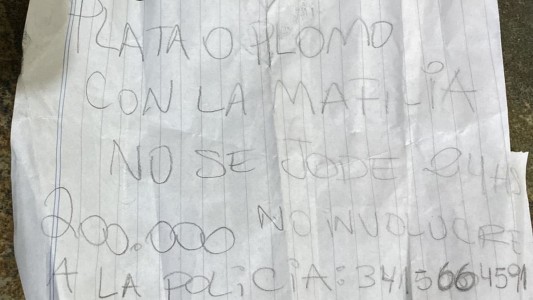 PLATA O PLOMO
CON LA MAFILIA
NO SE JODE 24HS
200.000 NO INVOLUCRE
A LA POLICIA: 3415664591